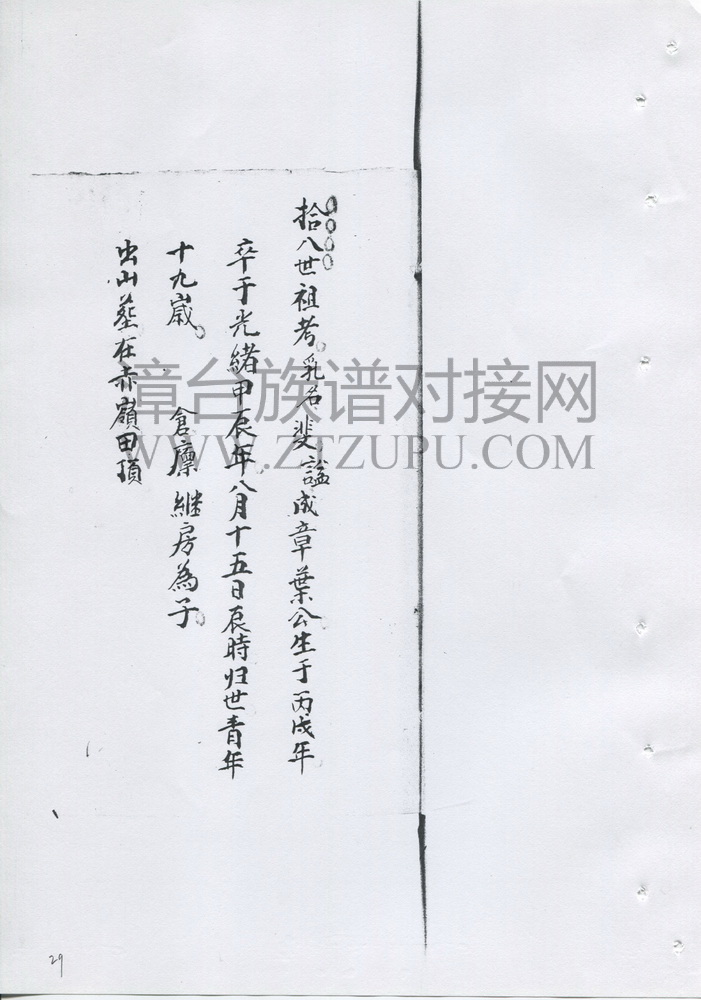 拾八世祖考乳名斐諡成章葉公生于丙戌年
卒于光緒甲辰年八月十五日辰時归世青年
十九歲。 倉廩継房為子。
出山葬在赤嶺田頂
章台族谱对接网
WWW.ZTZUPU.COM
29